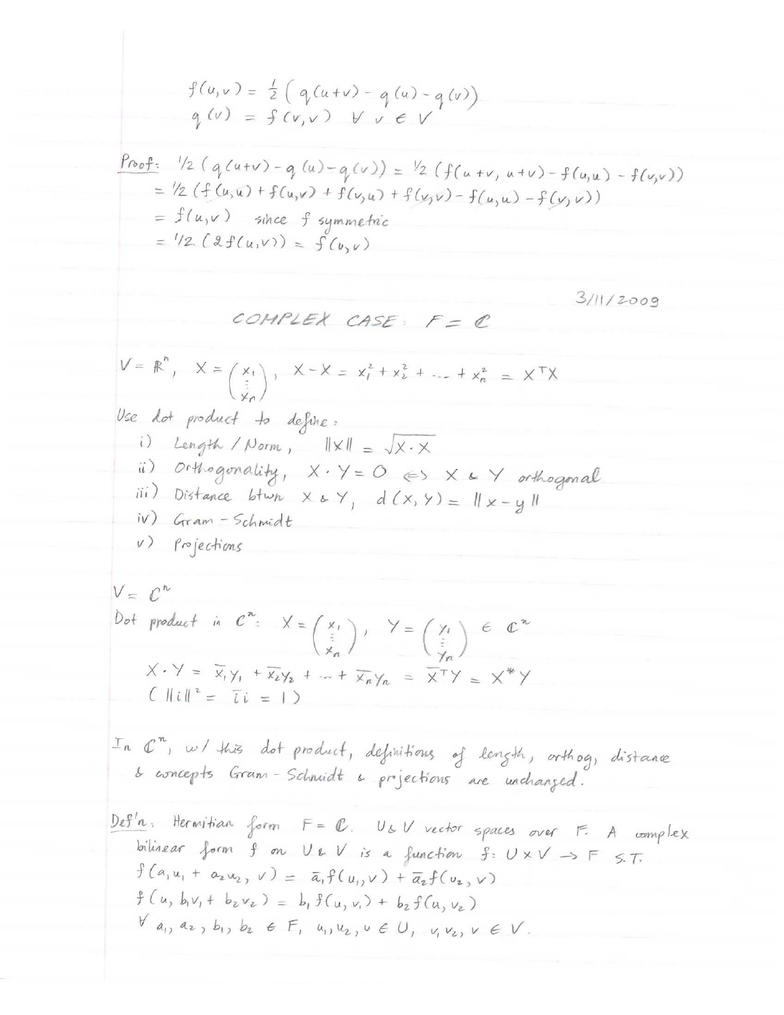 f(u,v) = ½ ( q(u+v) - q(u) - q(v))
q(v) = f(v,v) ∀ v ∈ V
Proof: 1/2 ( q(u+v) - q(u) - q(v)) = 1/2 (f(u+v, u+v) - f(u,u) - f(v,v))
= 1/2 (f(u,u) + f(u,v) + f(v,u) + f(v,v) - f(u,u) - f(v,v))
= f(u,v) since f symmetric
= 1/2 (2f(u,v)) = f(u,v)
3/11/2009
COMPLEX CASE: F = ℂ
V = ℝⁿ, X = (x₁ ⋮ xₙ), X-X = x₁² + x₂² + ... + xₙ² = XᵀX
Use dot product to define:
i) Length / Norm, ||X|| = √X·X
ii) Orthogonality, X·Y = 0 ⇔ X & Y orthogonal
iii) Distance btwn X & Y, d(X,Y) = ||x-y||
iv) Gram-Schmidt
v) Projections
V = ℂⁿ
Dot product in ℂⁿ: X = (x₁ ⋮ xₙ), Y = (y₁ ⋮ yₙ) ∈ ℂⁿ
X·Y = x̄₁y₁ + x̄₂y₂ + ... + x̄ₙyₙ = X̄ᵀY = X*Y
(||i||² = īi = 1)
In ℂⁿ, w/ this dot product, definitions of length, orthog, distance
& concepts Gram-Schmidt & projections are unchanged.
Def'n: Hermitian form F = ℂ. U & V vector spaces over F. A complex
bilinear form f on U & V is a function f: U×V → F S.T.
f(a₁u₁ + a₂u₂, v) = ā₁f(u₁,v) + ā₂f(u₂,v)
f(u, b₁v₁ + b₂v₂) = b₁f(u,v₁) + b₂f(u,v₂)
∀ a₁, a₂, b₁, b₂ ∈ F, u₁,u₂,u ∈ U, v₁v₂,v ∈ V.